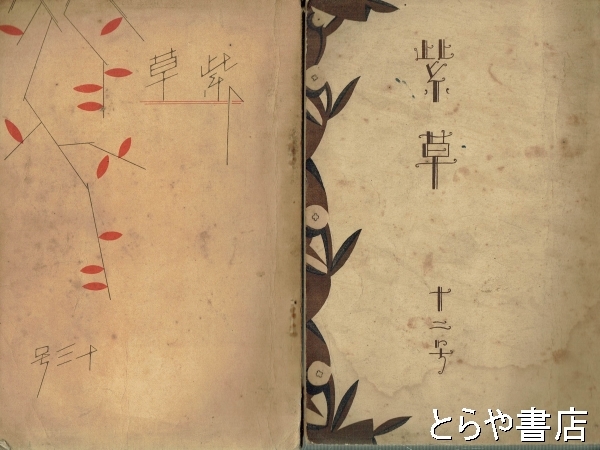 紫草
十三号
紫
草
十二号
とらや書店